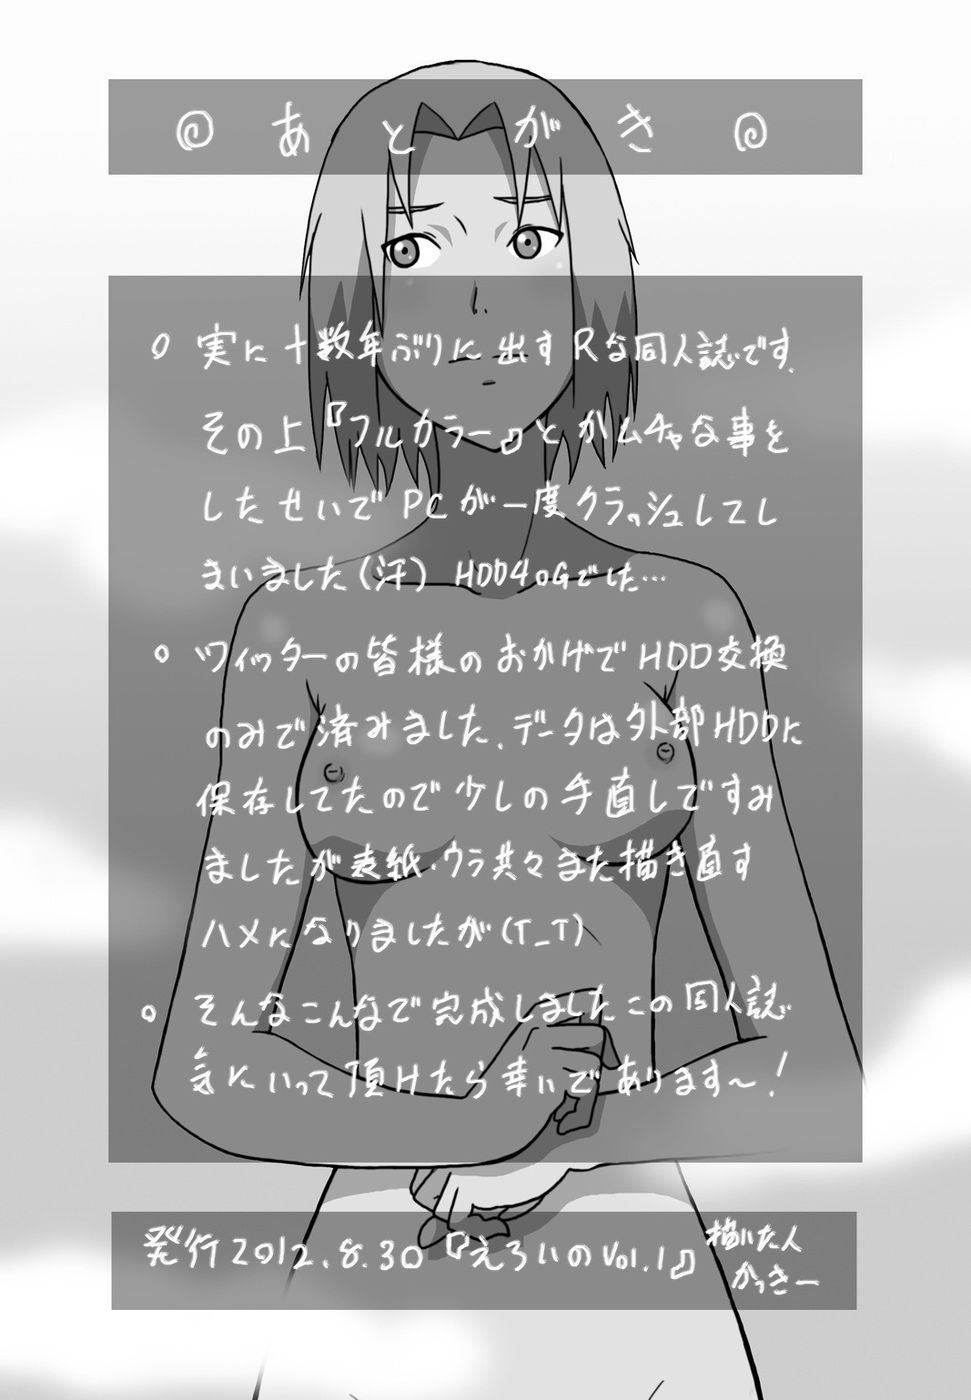 あとがき
○ 実に十数年ぶりに出すRな同人誌です、
その上『フルカラー』とかムチャな事を
したせいでPCが一度クラッシュしてし
まいました(汗) HDD40Gでした…
○ ツィッターの皆様のおかげでHDD交換
のみで済みました、データは外部HDDに
保存してたので少しの手直しですみ
ましたが表紙・ウラ共々また描き直す
ハメになりましたが(T_T)
○ そんなこんなで完成しましたこの同人誌
気にいって頂けたら幸いであります〜!
発行2012.8.30『えろいのVol.1』
描いた人
かっきー